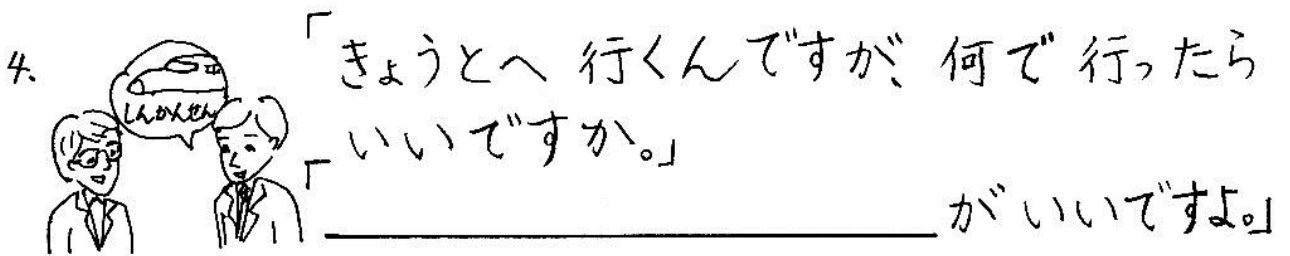 4.
しんかんせん
「きょうとへ 行くんですが、何で 行ったら
いいですか。」
「＿＿＿＿＿＿＿＿＿＿がいいですよ。」